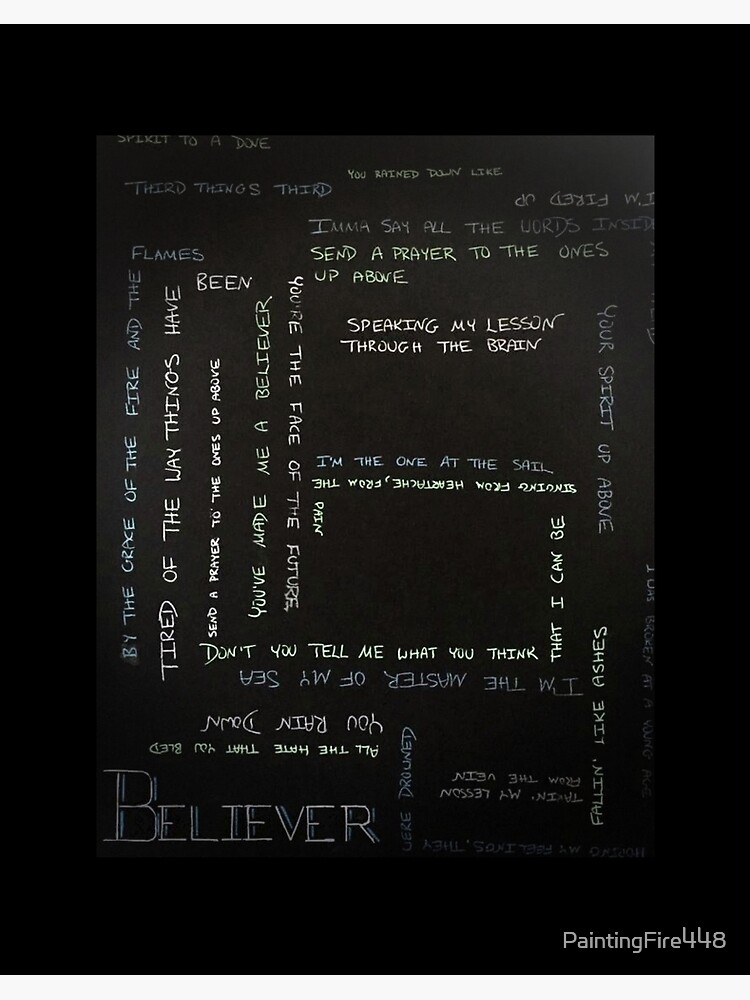 SPIRIT TO A DOVE
YOU RAINED DOWN LIKE
THIRD THINGS THIRD
I'M FIRED UP
IMMA SAY ALL THE WORDS INSIDE
FLAMES
SEND A PRAYER TO THE ONES
UP ABOVE
BEEN
BY THE GRACE OF THE FIRE AND THE
TIRED OF THE WAY THINGS HAVE
SEND A PRAYER TO THE ONES UP ABOVE
YOU'VE MADE ME A BELIEVER
YOU'RE THE FACE OF THE FUTURE,
SPEAKING MY LESSON
THROUGH THE BRAIN
YOUR SPIRIT UP ABOVE
I'M THE ONE AT THE SAIL
SINGING FROM HEARTACHE, FROM THE
PAIN
THAT I CAN BE
I WAS BROKEN AT A YOUNG AGE
DON'T YOU TELL ME WHAT YOU THINK
I'M THE MASTER OF MY SEA
FALLIN' LIKE ASHES
YOU RAIN DOWN
ALL THE HATE THAT YOU BLED
WERE DROWNED
TAKIN' MY LESSON
FROM THE VEIN
BELIEVER
HOPING MY FEELINGS, THEY
PaintingFire448